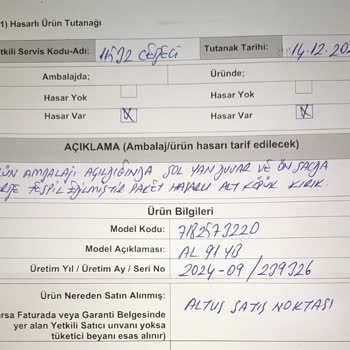 1) Hasarlı Ürün Tutanağı
etkili Servis Kodu-Adı: Tutanak Tarihi: 14.12.202
Ambalajda; Üründe;
Hasar Yok Hasar Yok
Hasar Var X Hasar Var X
AÇIKLAMA (Ambalaj/ürün hasarı tarif edilecek)
ÜN AMBALAJI AÇILDIĞINDA SOL YAN DUVAR VE ÖN SACDA
TESPİT EDİLMİŞTİR PAKET HASARLI ALT KÖPÜK KIRIK.
Ürün Bilgileri
Model Kodu: 7182573220
Model Açıklaması: AL 9141B
Üretim Yıl / Üretim Ay / Seri No 2024-09 / 239326
Ürün Nereden Satın Alınmış: ALTUS SATIŞ NOKTASI
arsa Faturada veya Garanti Belgesinde
yer alan Yetkili Satıcı unvanı yoksa
tüketici beyanı esas alınır)